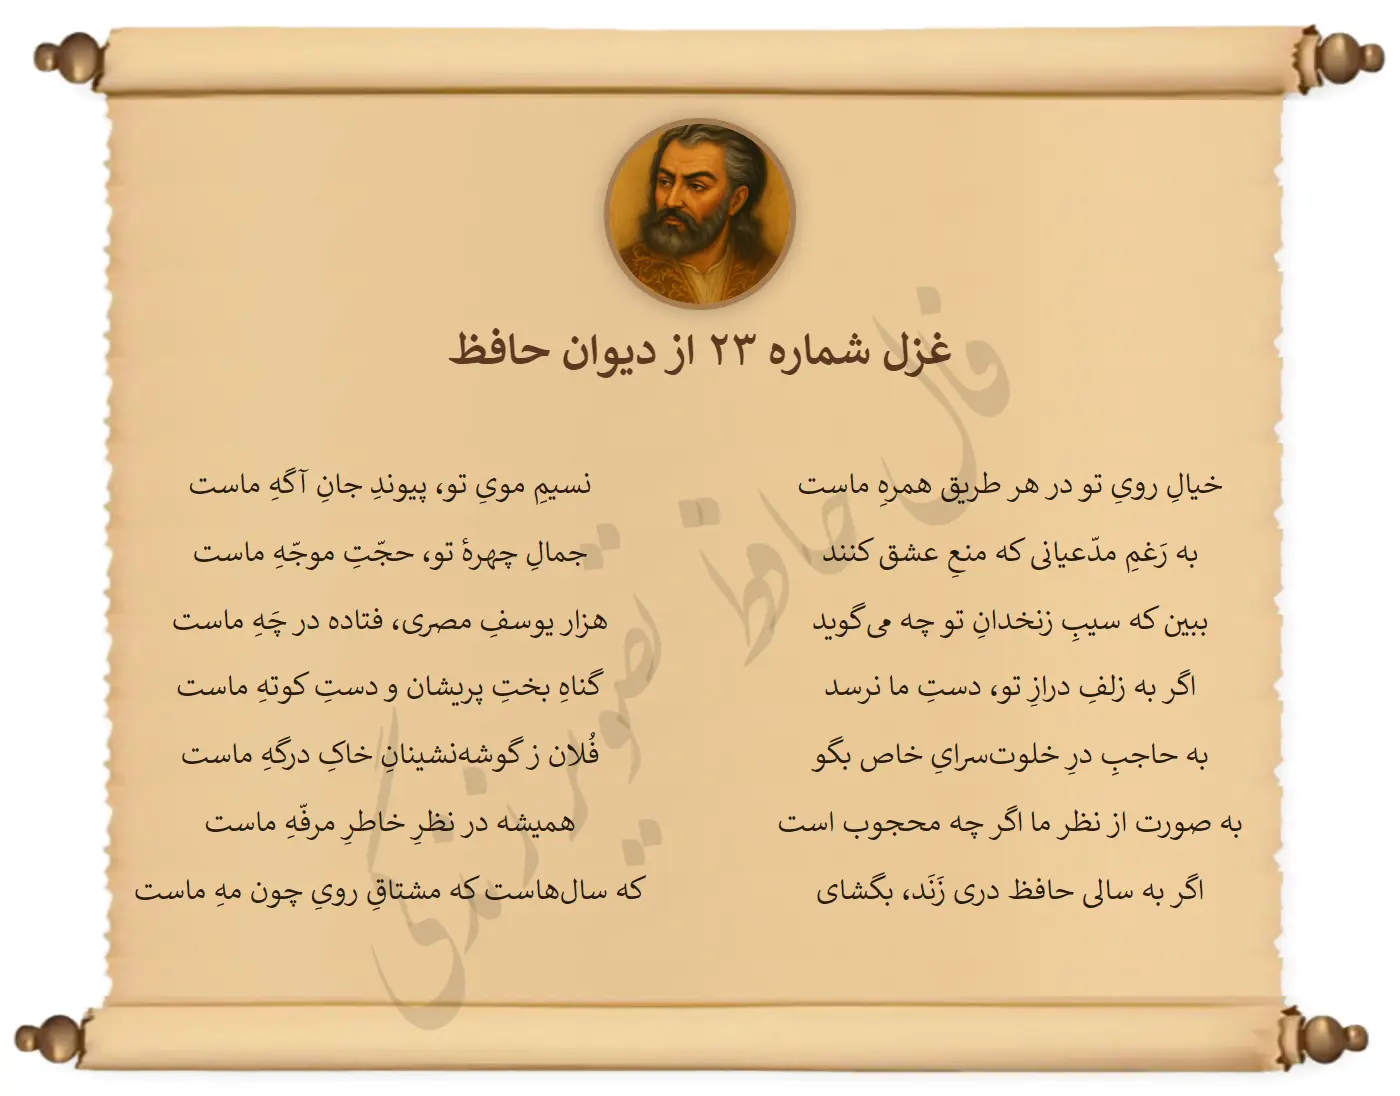 غزل شماره ۲۳ از دیوان حافظ
خیالِ رویِ تو در هر طریق همرهِ ماست
نسیمِ مویِ تو، پیوندِ جانِ آگهِ ماست
به رَغمِ مدّعیانی که منعِ عشق کنند
جمالِ چهرهٔ تو، حجّتِ موجّهِ ماست
ببین که سیبِ زنخدانِ تو چه می‌گوید
هزار یوسفِ مصری، فتاده در چَهِ ماست
اگر به زلفِ درازِ تو، دستِ ما نرسد
گناهِ بختِ پریشان و دستِ کوتهِ ماست
به حاجبِ درِ خلوت‌سرایِ خاص بگو
فُلان ز گوشه‌نشینانِ خاکِ درگهِ ماست
به صورت از نظر ما اگر چه محجوب است
همیشه در نظرِ خاطرِ مرفّهِ ماست
اگر به سالی حافظ دری زَنَد، بگشای
که سال‌هاست که مشتاقِ رویِ چون مهِ ماست
فال حافظ تصویر زندگی